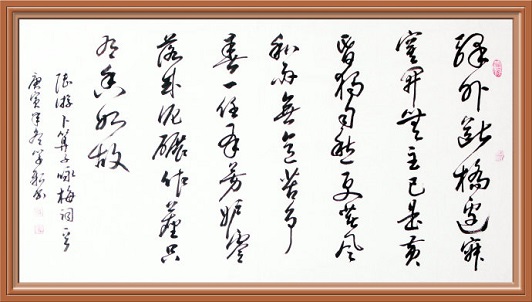 驛外斷橋邊寂
寞開無主已是黄
昏獨自愁更著風
和雨無意苦争
春一任群芳妒零
落成泥碾作塵只
有香如故
陸游卜算子咏梅詞一首
庚寅年冬